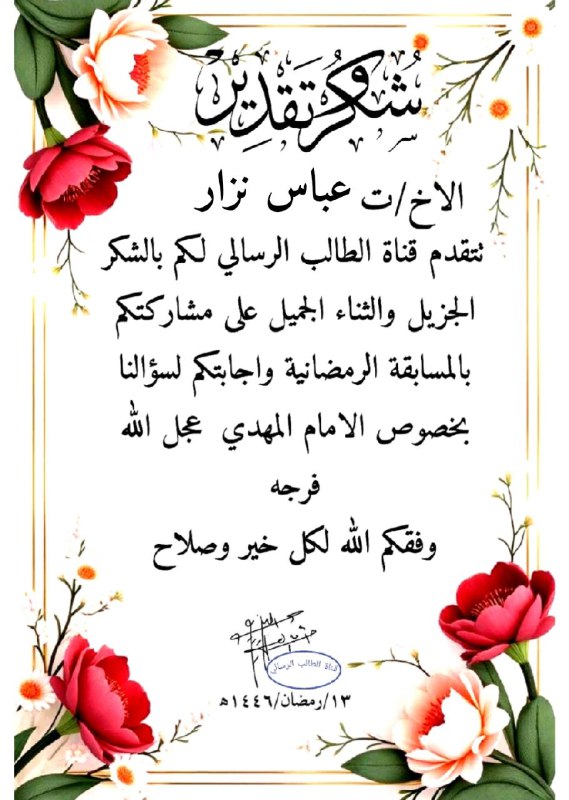 شكر وتقدير
الاخ/ت عباس نزار
تتقدم قناة الطالب الرسالي لكم بالشكر
الجزيل والثناء الجميل على مشاركتكم
بالمسابقة الرمضانية واجابتكم لسؤالنا
بخصوص الامام المهدي عجل الله
فرجه
وفقكم الله لكل خير وصلاح
قناة الطالب الرسالي
١٣/رمضان/١٤٤٦ه